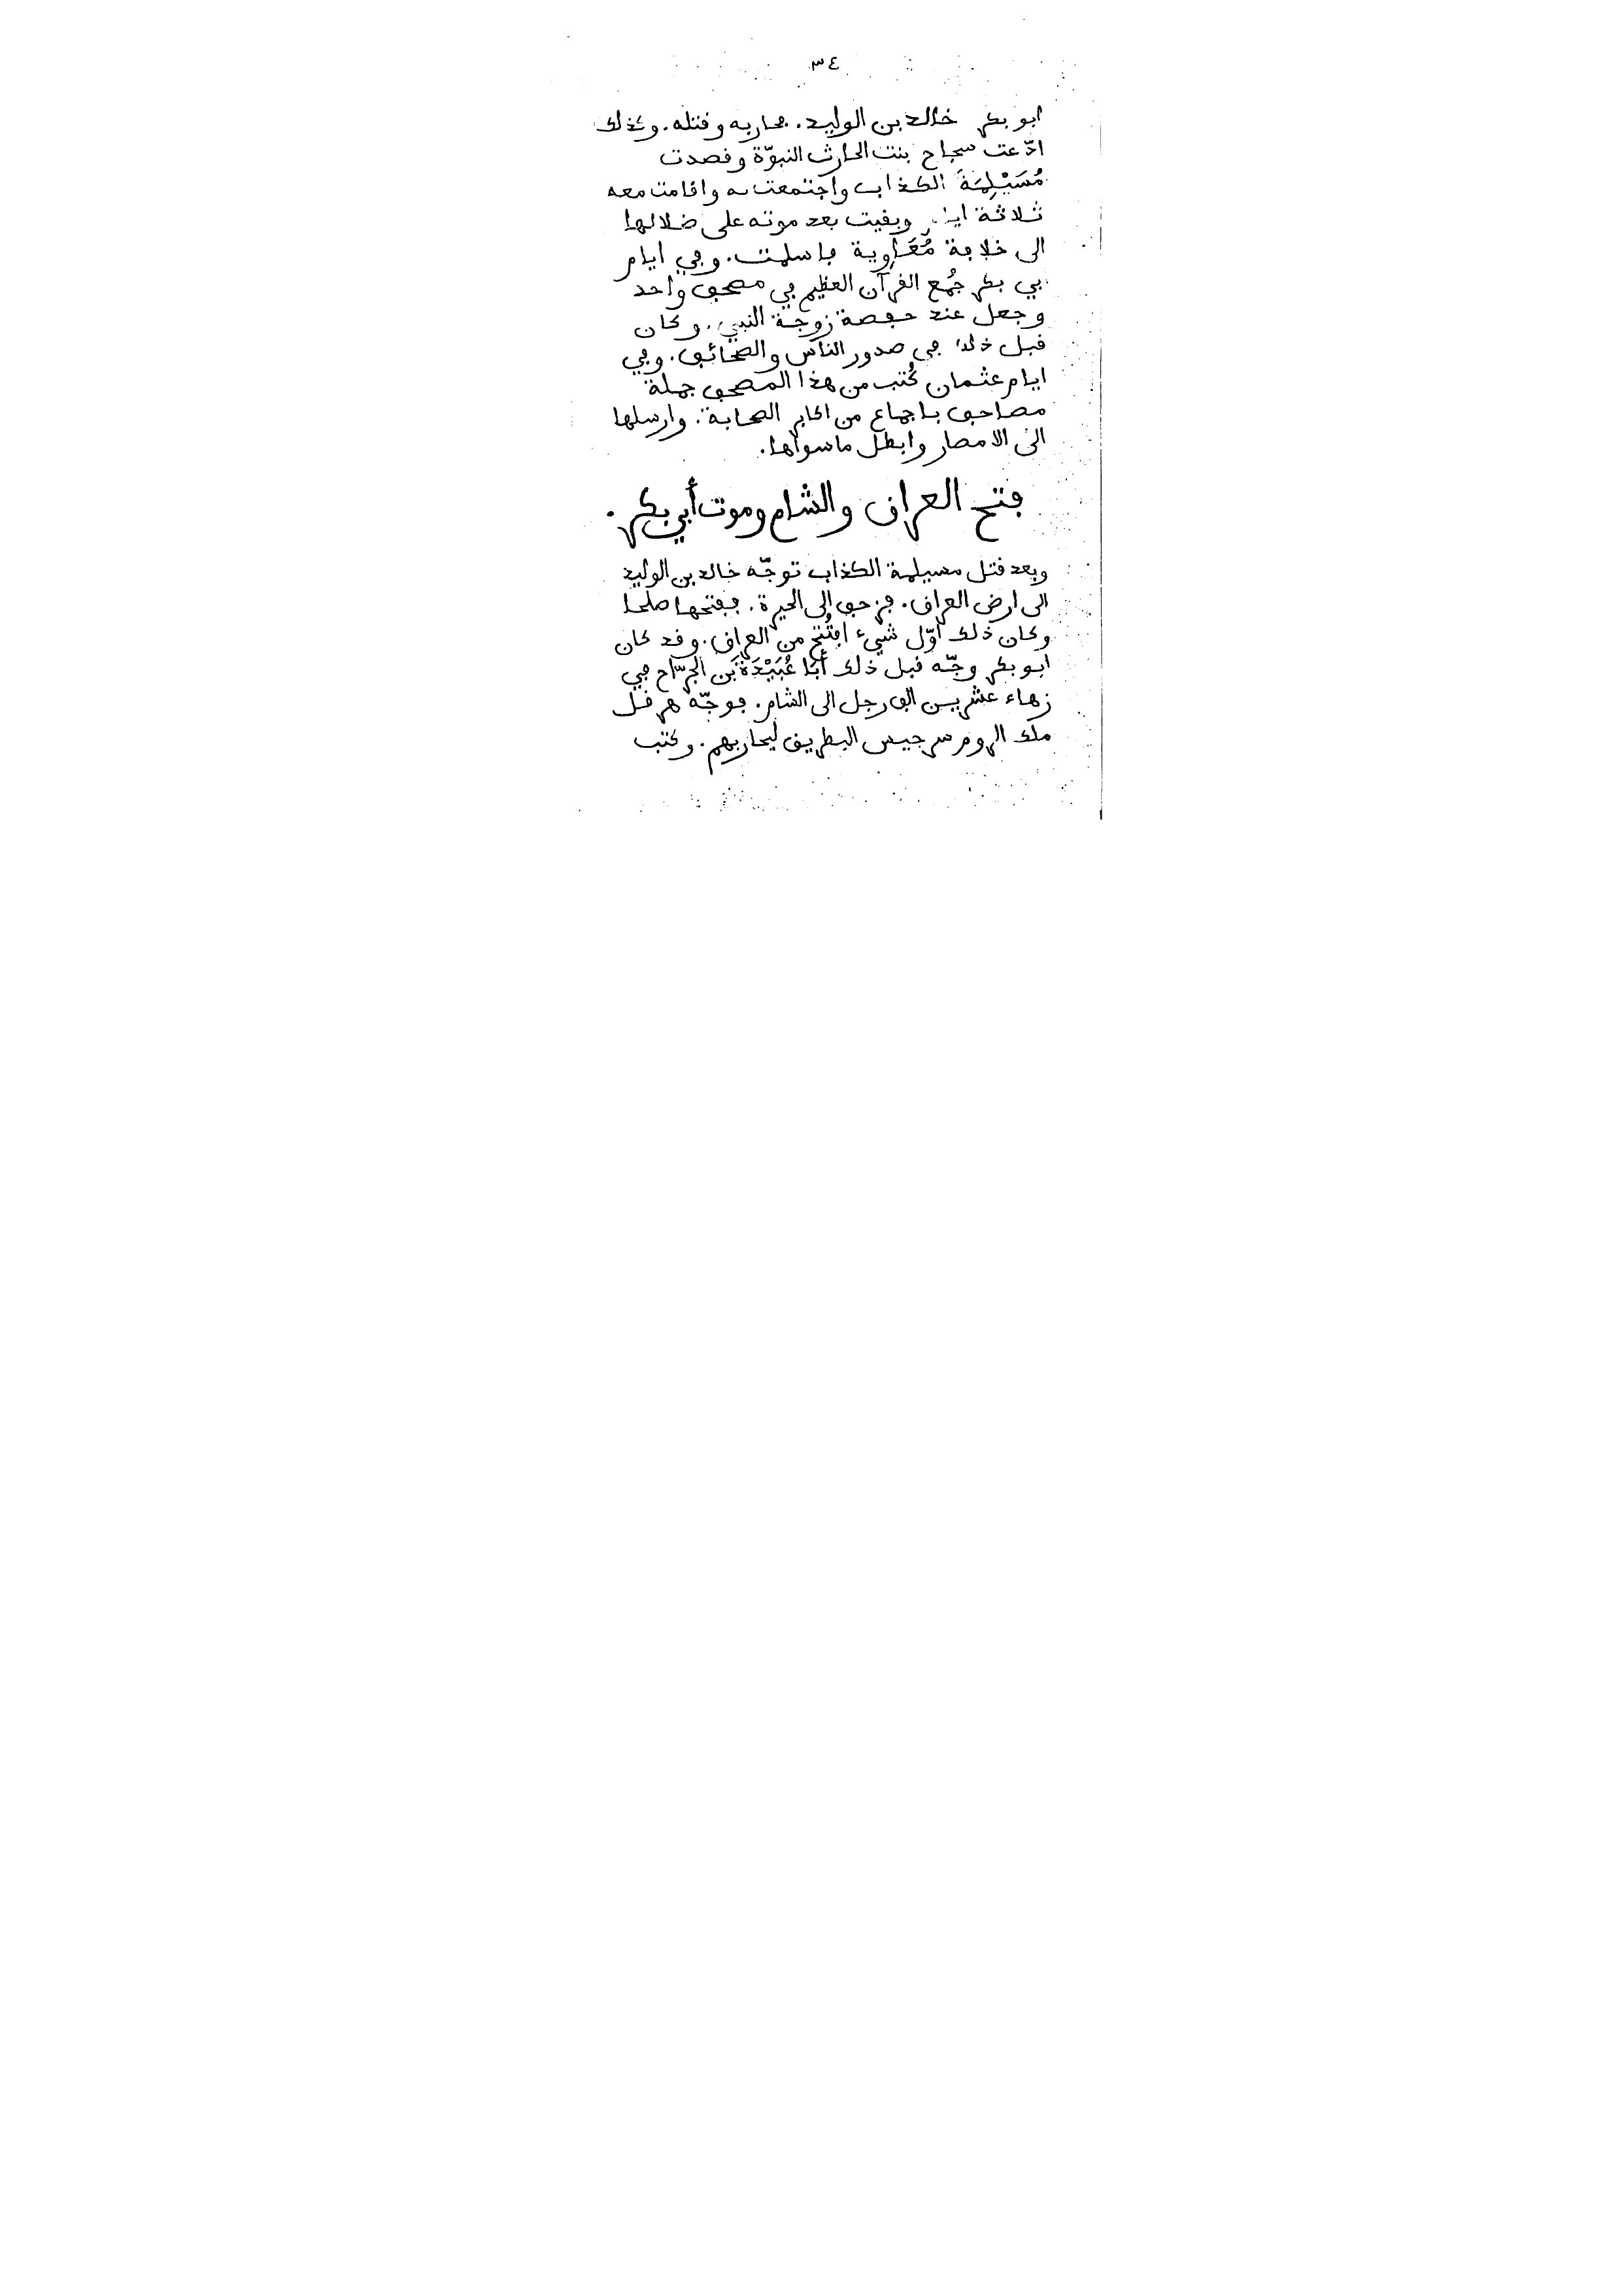 ٣٤
ابو بكر خالد بن الوليد. فحاربه وقتله. وكذلك
ادّعت سجاح بنت الحارث النبوّة وقصدت
مُسَيْلِمَةَ الكذاب واجتمعت به واقامت معه
ثلاثة وبقيت بعد موته على ضلالها
الى خلافة مُعَاوِية فاسلمت. وفي ايام
ابي بكر جُمع القرآن العظيم في مصحف واحد
وجعل عند حفصة زوجة النبي. وكان
قبل ذلك في صدور الناس والصحائف. وفي
ايام عثمان كُتب من هذا المصحف جملة
مصاحف باجماع من اكابر الصحابة. وارسلها
الى الامصار وابطل ما سواها.
فتح العراق والشام وموت أبي بكر.
وبعد قتل مسيلمة الكذاب توجّه خالد بن الوليد
الى ارض العراق. فزحف الى الحيرة. ففتحها صلحا
وكان ذلك اوّل شيء افتُتح من العراق. وقد كان
ابو بكر وجّه قبل ذلك أَبَا عُبَيْدَةَ بَن الجرّاح في
زهاء عشرين الف رجل الى الشام. فوجّه هرقل
ملك الروم سرجيس البطريق ليحاربهم. وكتب